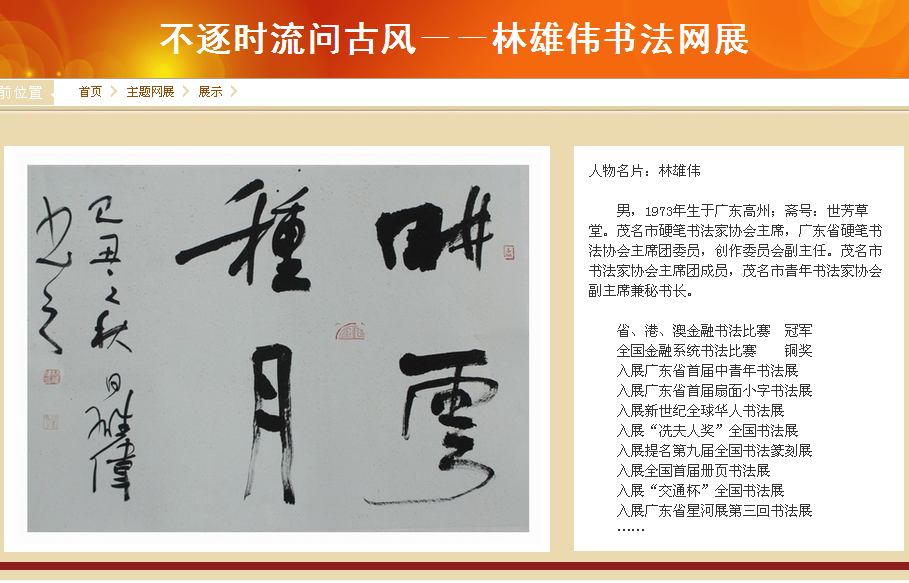 不逐时流问古风——林雄伟书法网展
前位置
首页 主题网展 展示
畊雲
種月
己丑之秋日雄偉
人物名片：林雄伟
男，1973年生于广东高州；斋号：世芳草
堂。茂名市硬笔书法家协会主席，广东省硬笔书
法协会主席团委员，创作委员会副主任。茂名市
书法家协会主席团成员，茂名市青年书法家协会
副主席兼秘书长。
省、港、澳金融书法比赛 冠军
全国金融系统书法比赛 铜奖
入展广东省首届中青年书法展
入展广东省首届扇面小字书法展
入展新世纪全球华人书法展
入展“冼夫人奖”全国书法展
入展提名第九届全国书法篆刻展
入展全国首届册页书法展
入展“交通杯”全国书法展
入展广东省星河展第三回书法展
……